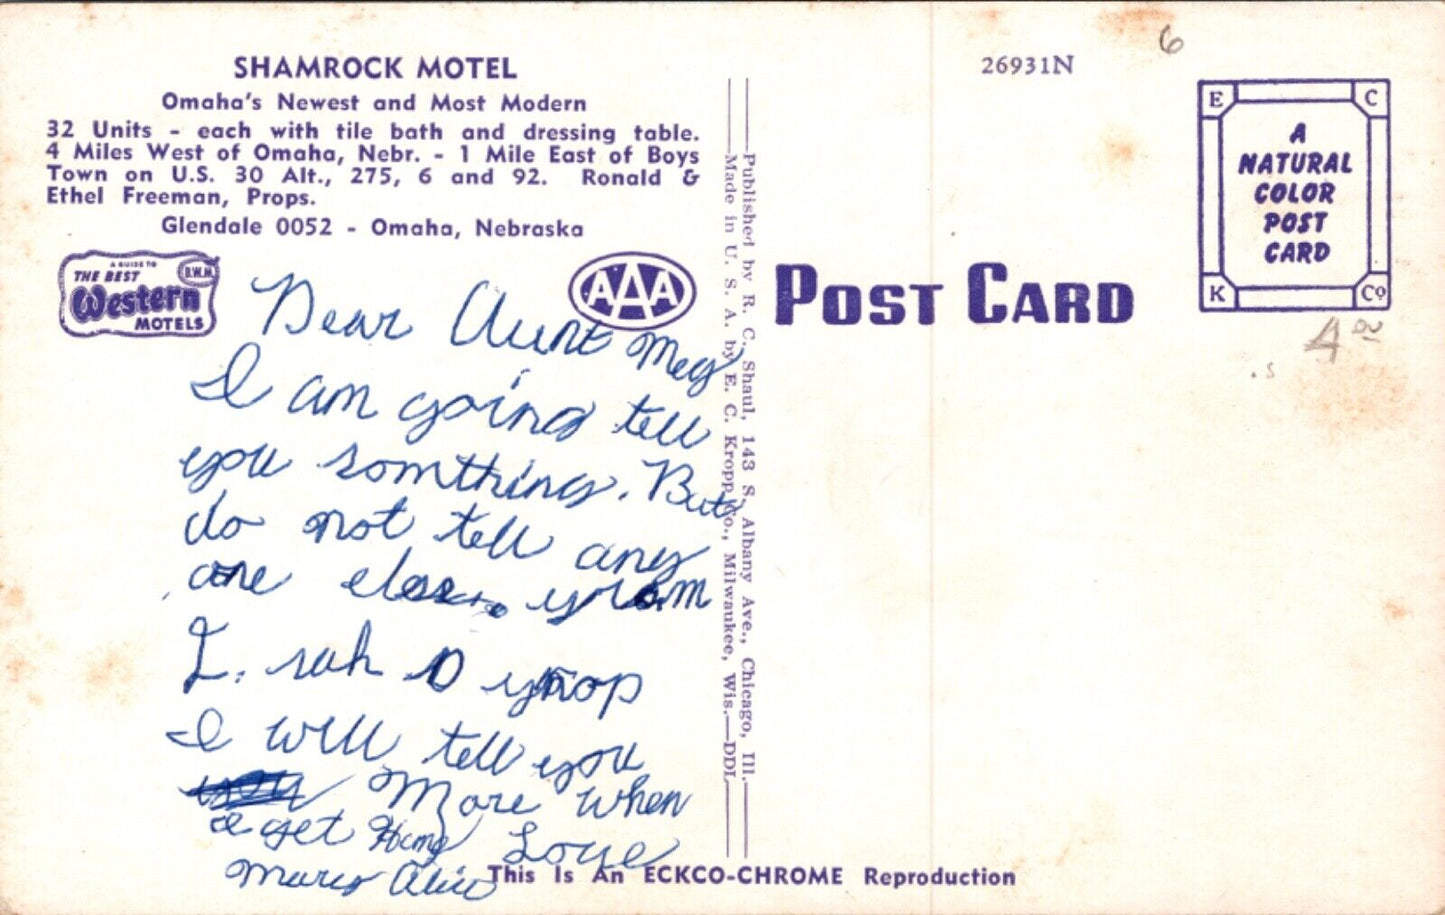 SHAMROCK MOTEL
Omaha's Newest and Most Modern
32 Units - each with tile bath and dressing table.
4 Miles West of Omaha, Nebr. - 1 Mile East of Boys
Town on U.S. 30 Alt., 275, 6 and 92. Ronald &
Ethel Freeman, Props.
Glendale 0052 - Omaha, Nebraska
A GUIDE TO
THE BEST
B.W.M.
Western
MOTELS
AAA
Dear Aunt Meg
I am going tell
you somthing. But
do not tell any
one
I. rah
I will tell you
More when
I get Home Love
Mary Alice
Published by R. C. Shaul, 143 S. Albany Ave., Chicago, Ill.
Made in U. S. A. by E. C. Kropp Co., Milwaukee, Wis.—DDL
26931N
6
E C
A
NATURAL
COLOR
POST
CARD
K Co
POST CARD
4 00
.s
This Is An ECKCO-CHROME Reproduction